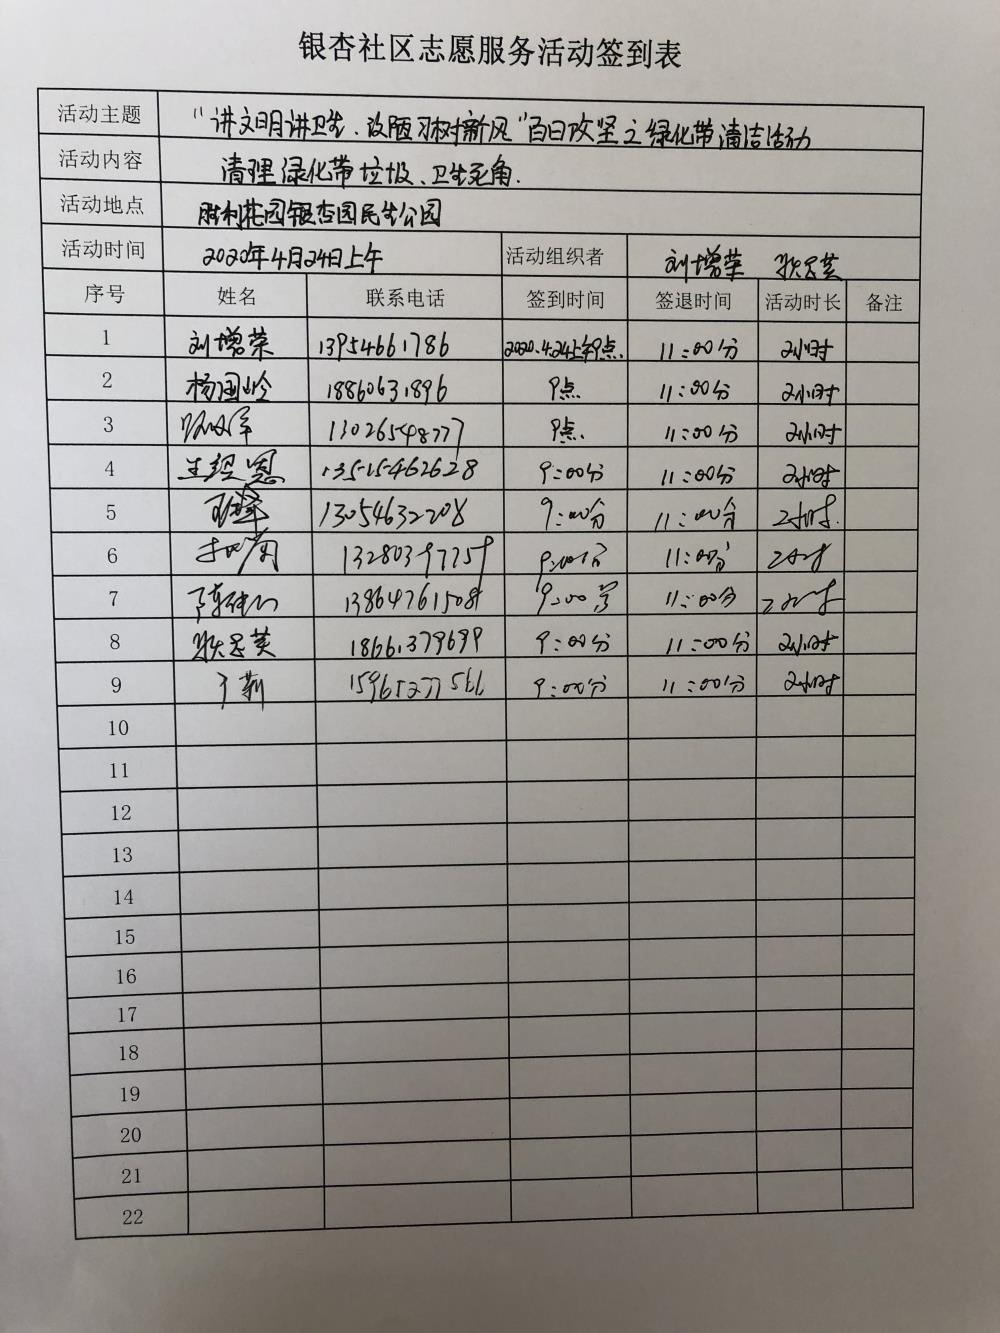 银杏社区志愿服务活动签到表
活动主题 "讲文明讲卫生、改陋习树新风"百日攻坚之绿化带清洁活动
活动内容 清理绿化带垃圾、卫生死角.
活动地点 胜利花园银杏园民生公园
活动时间 2020年4月24日上午 活动组织者 刘增荣
序号 姓名 联系电话 签到时间 签退时间 活动时长 备注
1 刘增荣 13954661786 2020.4.24上午9点. 11:00分 2小时
2 杨国岭 18860631896 9点 11:00分 2小时
3 13026548777 9点. 11:00分 2小时
4 13515462628 9:00分 11:00分 2小时
5 13054632208 9:00分 11:00分 2小时.
6 13280397759 9:00分 11:00分 2小时
7 13864761508 9:00分 11:00分 2小时
8 18661379699 9:00分 11:00分 2小时
9 15965277566 9:00分 11:00分 2小时
10
11
12
13
14
15
16
17
18
19
20
21
22